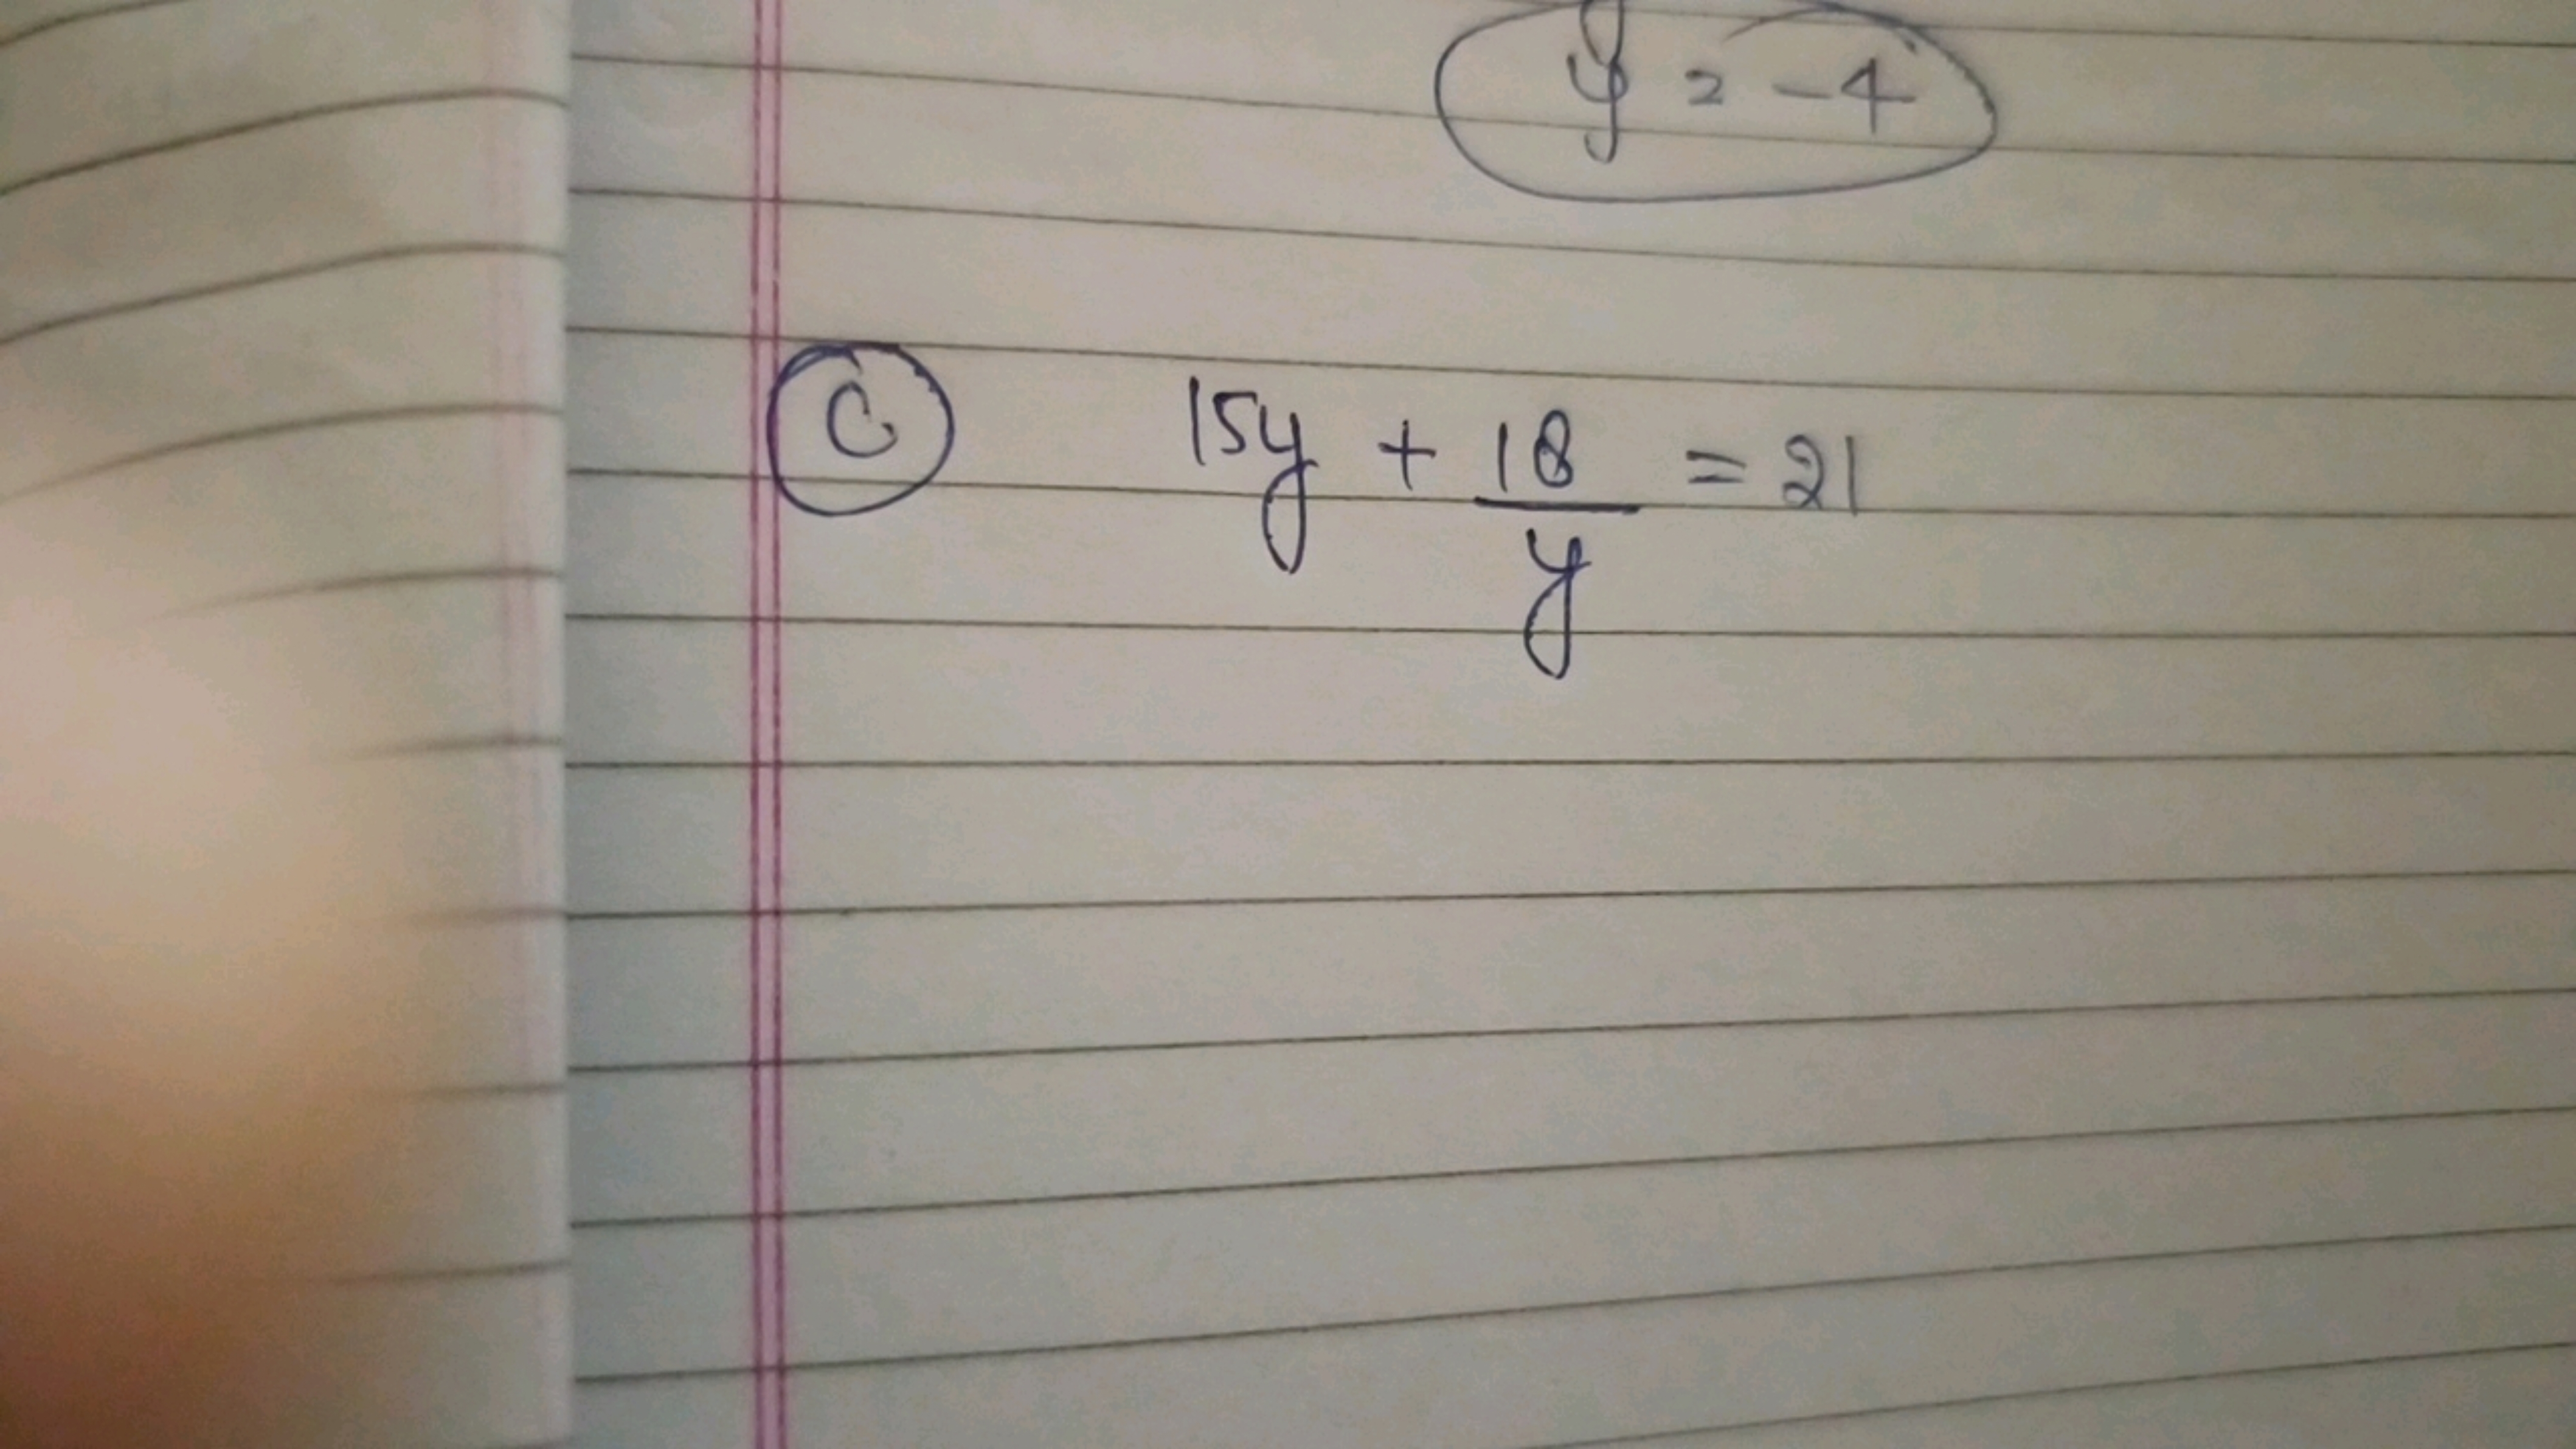 y = -4
C 15y + 18/y = 21